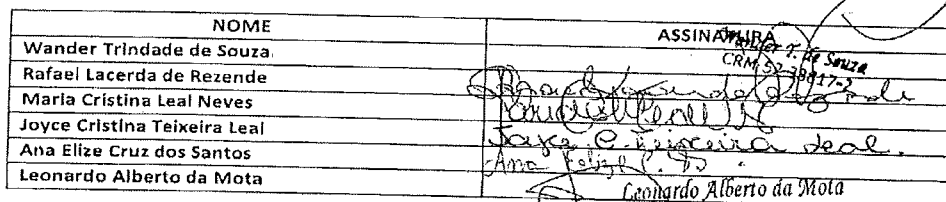 NOME ASSINATURA
Wander Trindade de Souza Wander T. de Souza
CRM 52-38817-2
Rafael Lacerda de Rezende
Maria Cristina Leal Neves
Joyce Cristina Teixeira Leal Joyce C. Teixeira Leal.
Ana Elize Cruz dos Santos Ana Elize C. D.
Leonardo Alberto da Mota Leonardo Alberto da Mota